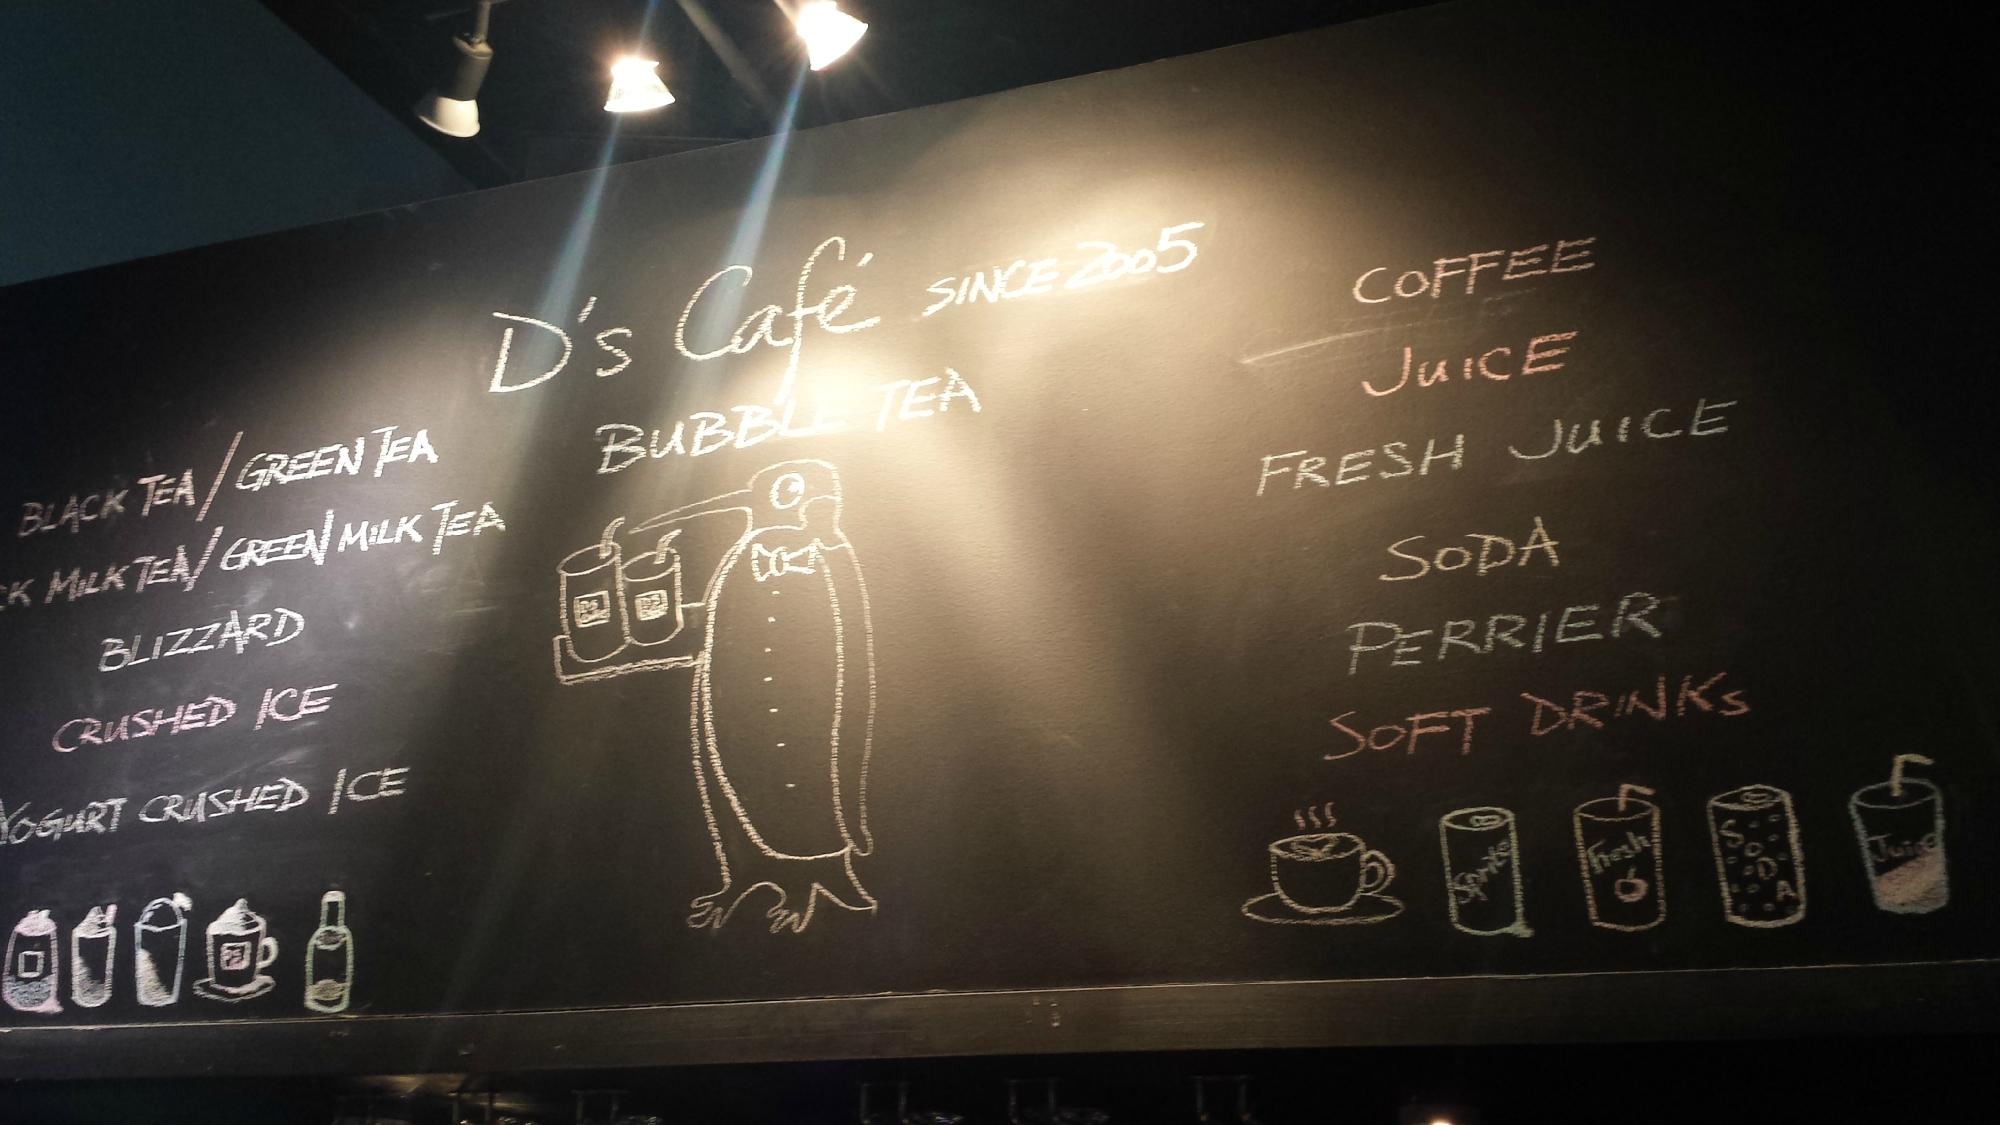 D's Café SINCE 2005
BUBBLE TEA
BLACK TEA / GREEN TEA
CK MILK TEA / GREEN MILK TEA
BLIZZARD
CRUSHED ICE
YOGURT CRUSHED ICE
COFFEE
JUICE
FRESH JUICE
SODA
PERRIER
SOFT DRINKS
Sprite
Fresh
SODA
Juice